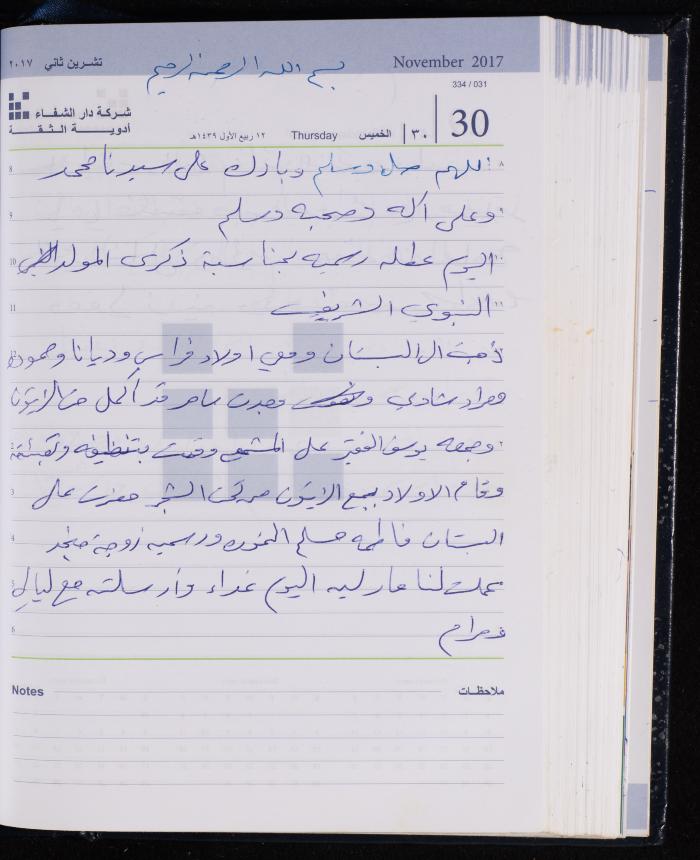 تشرين ثاني ٢٠١٧
November 2017
بسم الله الرحمن الرحيم
334 / 031
شركة دار الشفاء
أدوية الثقة
١٢ ربيع الأول ١٤٣٩هـ
Thursday
الخميس
٣٠
30
اللهم صل وسلم وبارك على سيدنا محمد
وعلى آله وصحبه وسلم
اليوم عطله رسميه بمناسبة ذكرى المولد
النبوي الشريف
ذهبت الى البستان ومعي اولاد فراس وديانا وحمود
ومراد شادي وجدت سامر قد اكمل الزيتون
وجمعه يوسف الفقير على المشمع وقمت بتنظيفه وتعبئته
وقام الاولاد بجمع الزيتون من تحت الشجر حضرت على
البستان فاطمه مسلم ورسميه زوجة منجد
عملت لنا اليوم غداء وارسلته مع ليالي
ومرام
Notes
ملاحظات